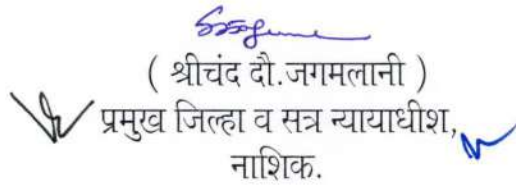 ( श्रीचंद दौ.जगमलानी )
प्रमुख जिल्हा व सत्र न्यायाधीश,
नाशिक.